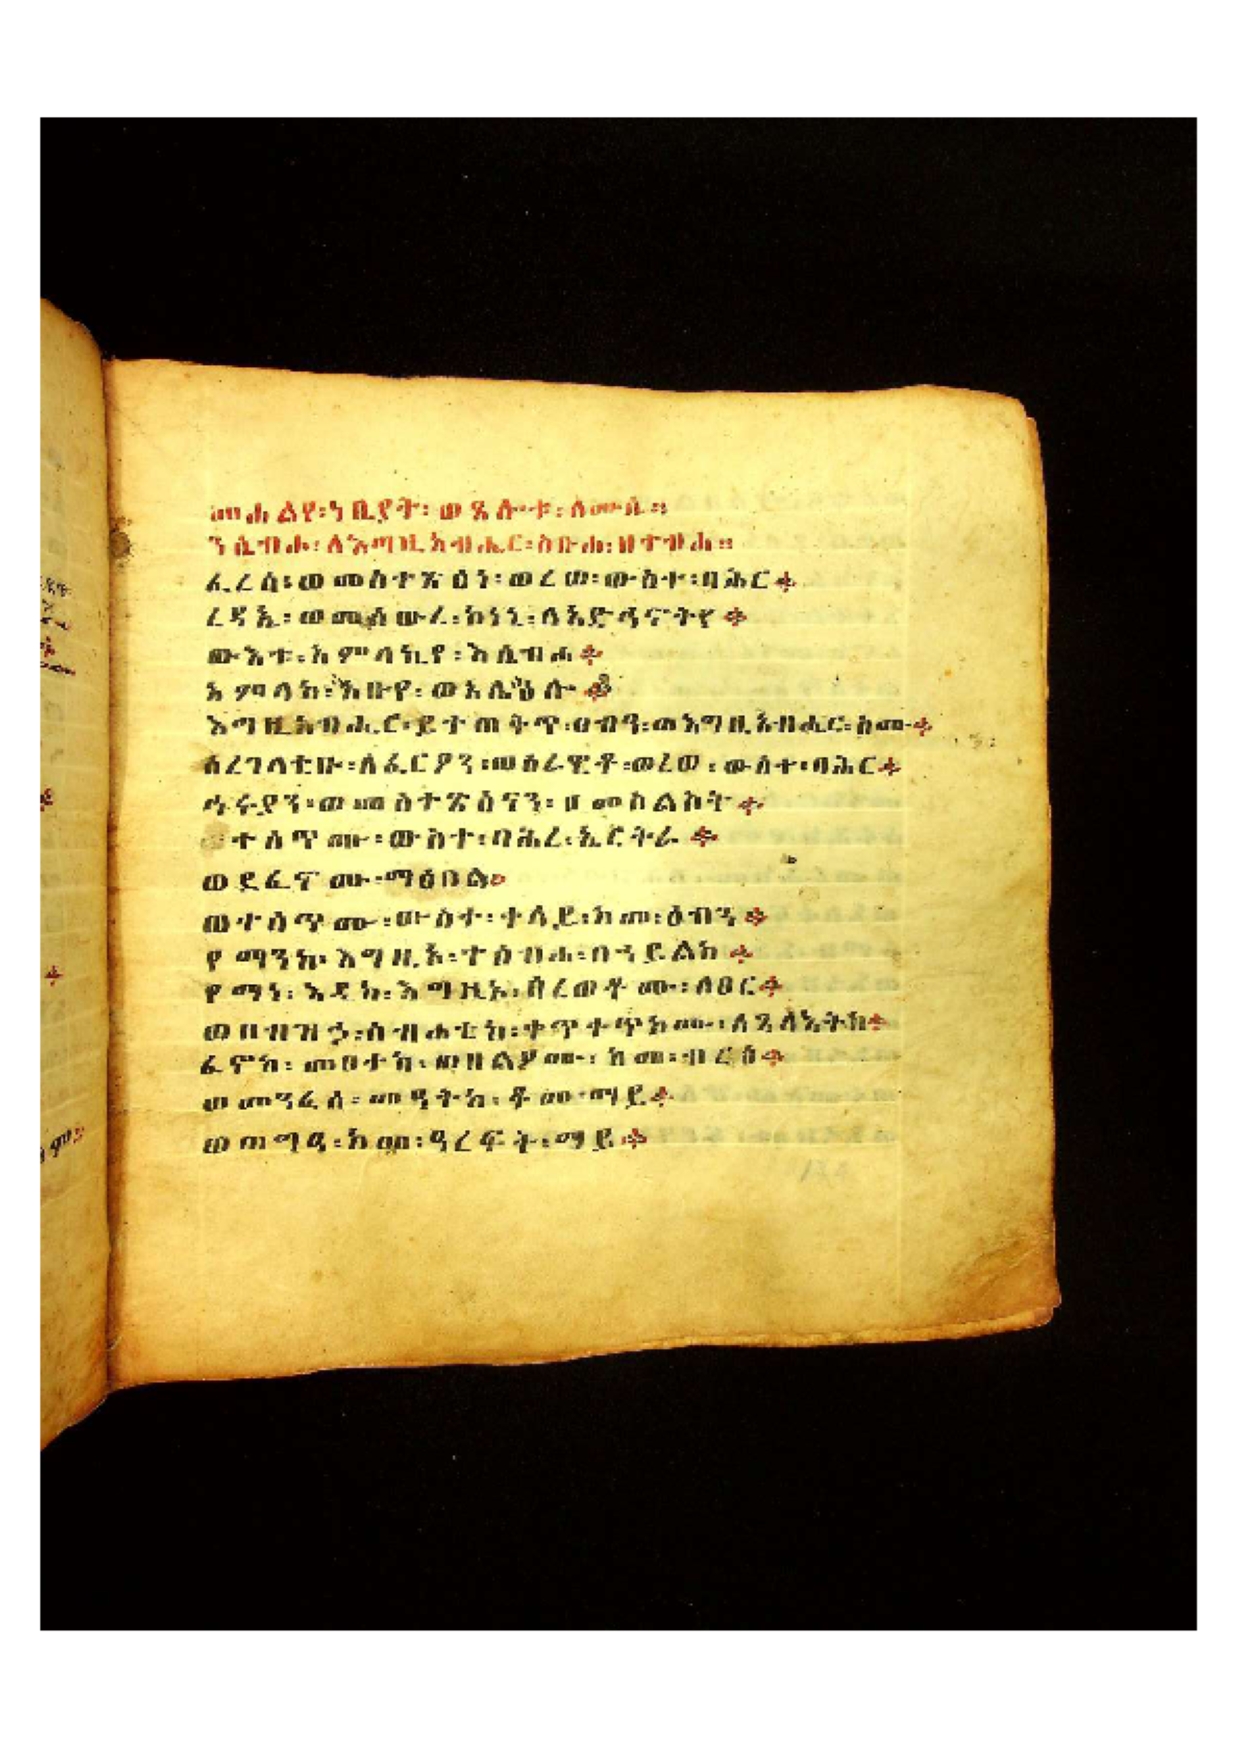 መሐልየ፡ነቢያት፡ወጸሎቱ፡ለሙሴ።
ንሴብሖ፡ለእግዚአብሔር፡ስቡሐ፡ዘተብሐ።
ፈረሰ፡ወመስተጽዕነ፡ወረወ፡ውስተ፡ባሕር፨
ረዳኢ፡ወመሰውረ፡ኮነኒ፡ለአድኅኖትየ፨
ውእቱ፡አምላኪየ፡እሴብሖ፨
አምላከ፡አቡየ፡ወአሌዕሎ፨
እግዚአብሔር፡ይተጠትጥ፡ፀብዓ፡ወእግዚአብሔር፡ስሙ፨
ሰረገላቲሁ፡ለፈርዖን፡ወሰራዊቶ፡ወረወ፡ውስተ፡ባሕር፨
ኅሩያን፡ወመስተጽዕናን፡፡መስልስት፨
ተሰጥሙ፡ውስተ፡ባሕረ፡ኤርትራ፨
ወደፈኖሙ፡ማዕበል፨
ወተሰጥሙ፡ውስተ፡ቀላይ፡ከመ፡ዕብን፨
የማንከ፡እግዚኦ፡ተሰብሐ፡በኃይልከ፨
የማነ፡እዴከ፡እግዚኦ፡ሰረወቶሙ፡ለፀር፨
ወበዝኀ፡ስብሐቲከ፡ቀጥቀጥከሙ፡ለጸላእትከ፨
ፈኖከ፡መዐተከ፡ወበልዖሙ፡ከመ፡ብረዕ፨
ወመንፈሰ፡መዓትከ፡ቆመ፡ማይ፨
ወጠግዓ፡ከመ፡ዓረፍት፡ማይ፨